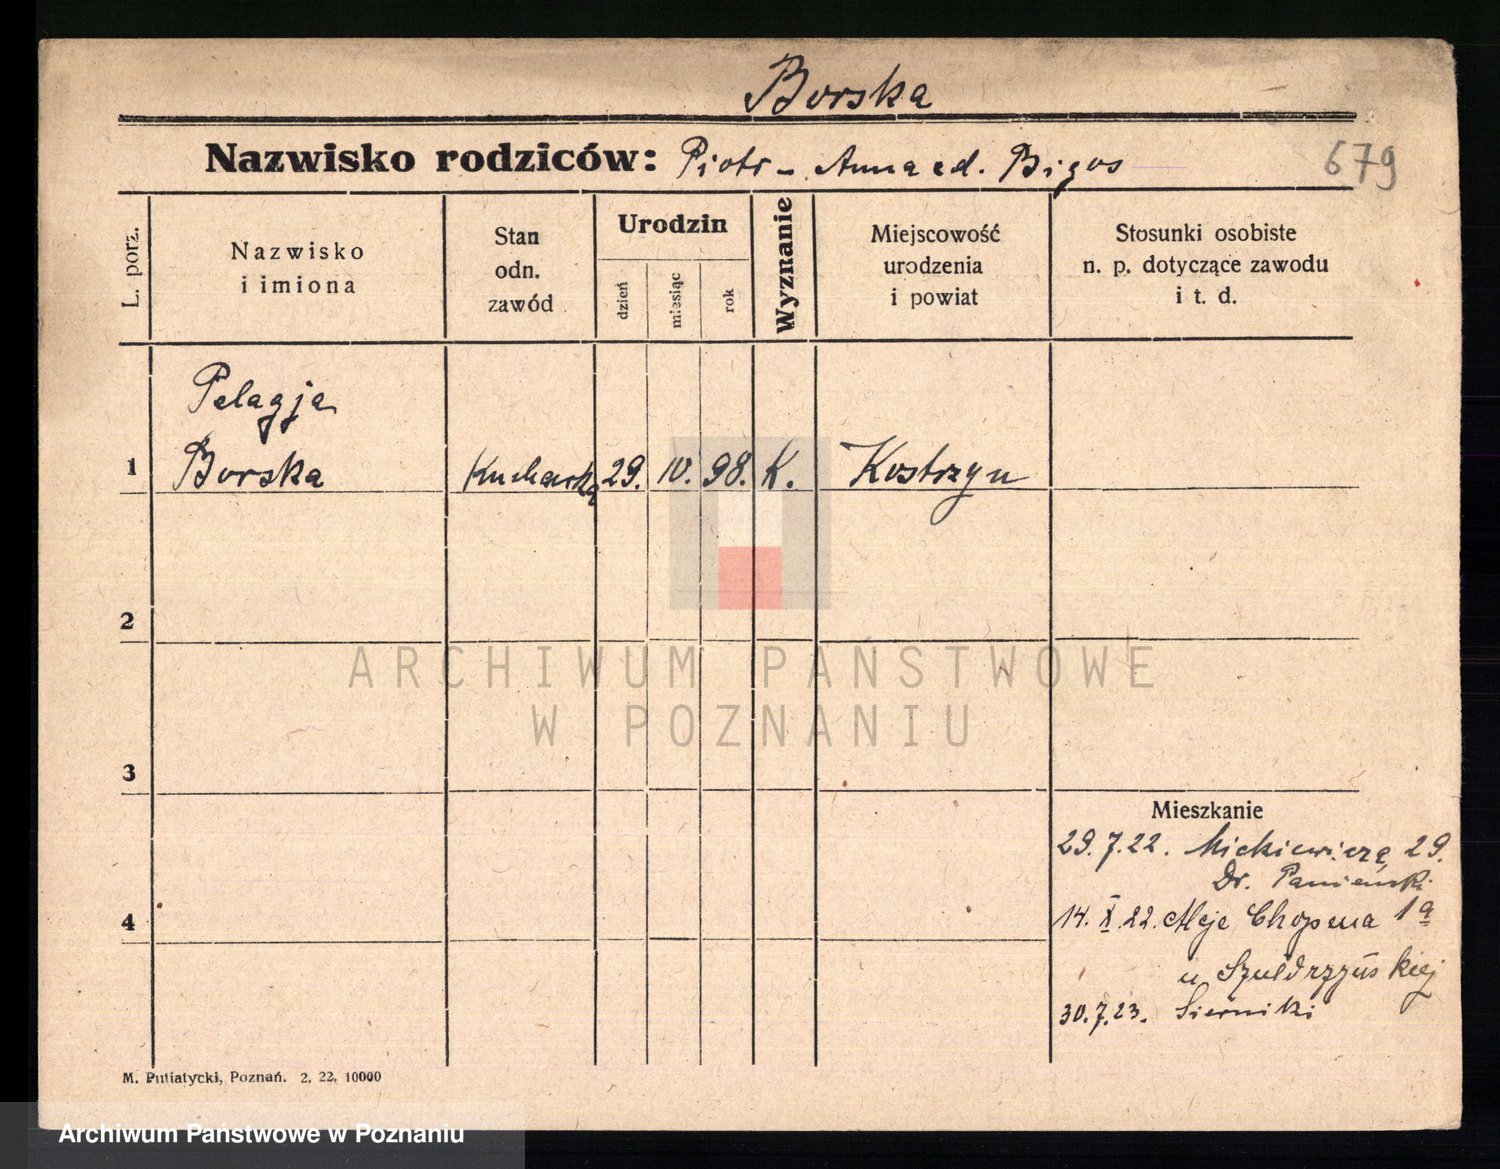 Borska
Nazwisko rodziców: Piotr - Anna ed. Bigos
679
L. porz.
Nazwisko
i imiona
Stan
odn.
zawód
Urodzin
dzień
miesiąc
rok
Wyznanie
Miejscowość
urodzenia
i powiat
Stosunki osobiste
n. p. dotyczące zawodu
i t. d.
Pelagja
1 Borska Kucharka 29. IV. 98. K. Kostrzyn
2
ARCHIWUM PAŃSTWOWE
W POZNANIU
3
Mieszkanie
29.7.22. Mickiewicza 29.
Dr. Panieński
4
14. X. 22. Aleje Chopena 1a
u Szułdrzyńskiej
30.7.23. Sierniki
M. Putiatycki, Poznań. 2, 22, 10000
Archiwum Państwowe w Poznaniu